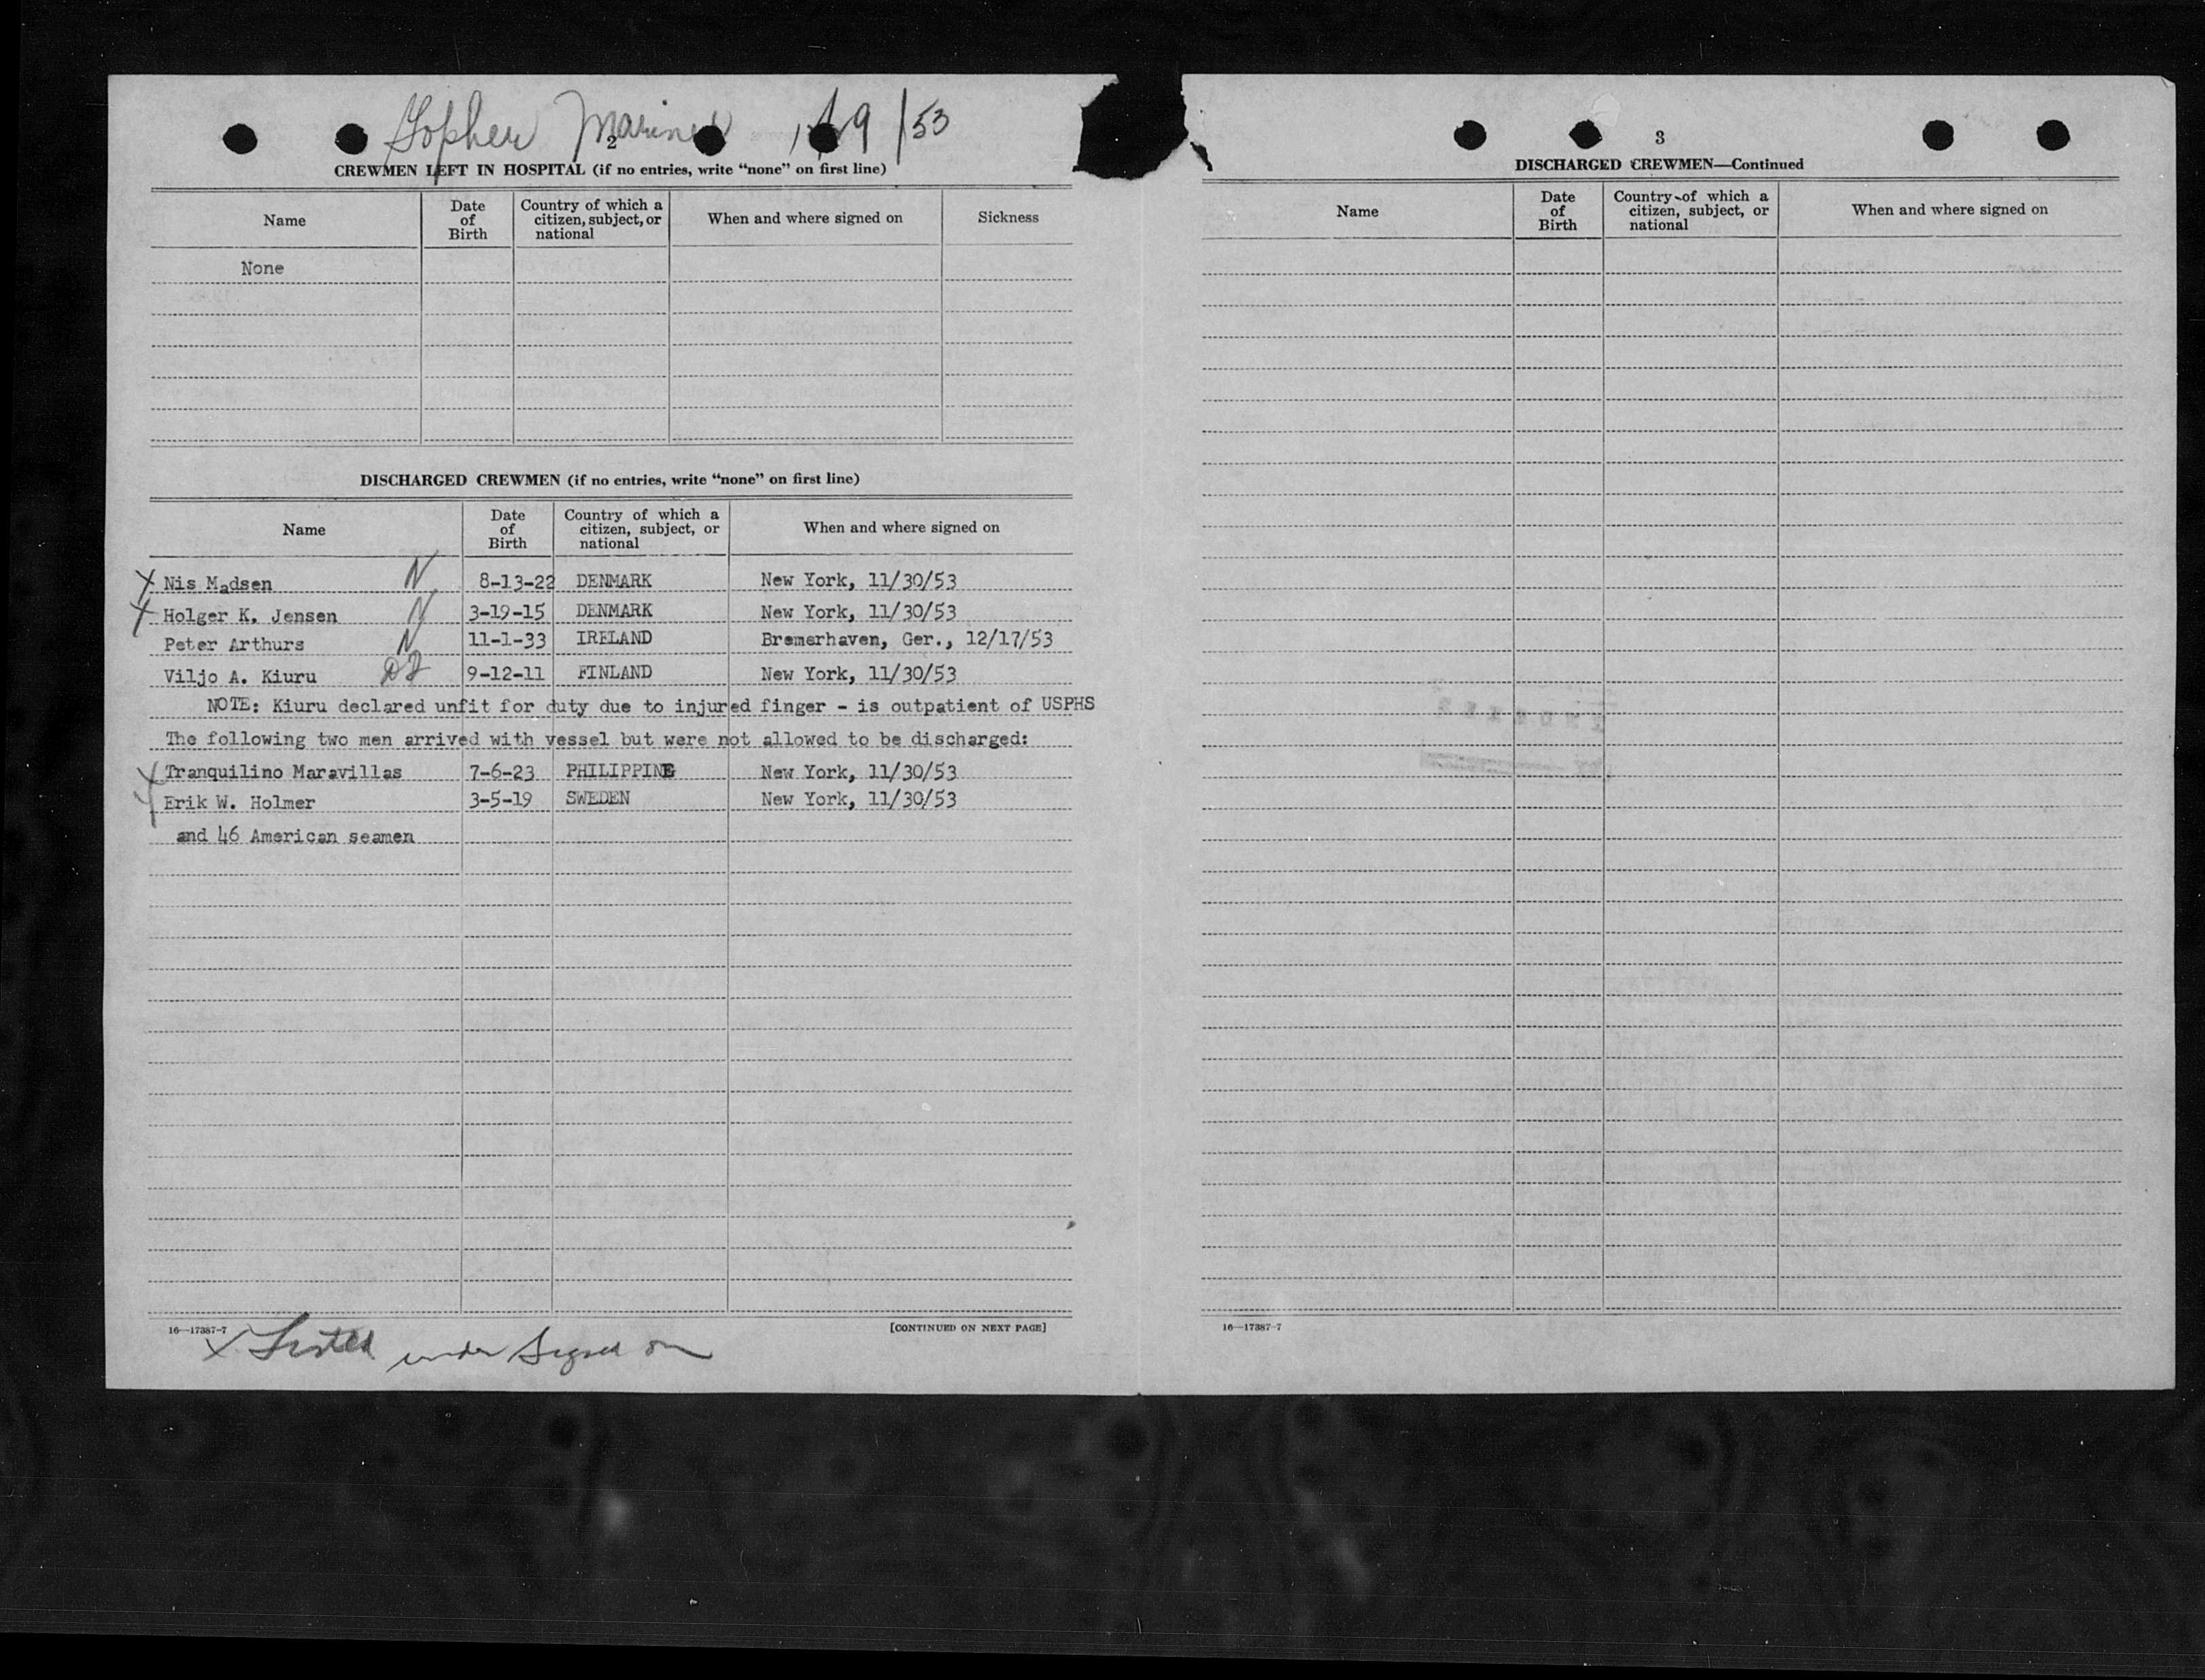 Gopher Mariner 1/9/53
2
CREWMEN LEFT IN HOSPITAL (if no entries, write “none” on first line)
Name Date of Birth Country of which a citizen, subject, or national When and where signed on Sickness
None
DISCHARGED CREWMEN (if no entries, write “none” on first line)
Name Date of Birth Country of which a citizen, subject, or national When and where signed on
X Nis Madsen N 8-13-22 DENMARK New York, 11/30/53
X Holger K. Jensen N 3-19-15 DENMARK New York, 11/30/53
Peter Arthurs N 11-1-33 IRELAND Bremerhaven, Ger., 12/17/53
Viljo A. Kiuru 9-12-11 FINLAND New York, 11/30/53
NOTE: Kiuru declared unfit for duty due to injured finger - is outpatient of USPHS
The following two men arrived with vessel but were not allowed to be discharged:
X Tranquilino Maravillas 7-6-23 PHILIPPINE New York, 11/30/53
X Erik W. Holmer 3-5-19 SWEDEN New York, 11/30/53
and 46 American seamen
16—17387-7 [CONTINUED ON NEXT PAGE]
X Listed under Signed on
3
DISCHARGED CREWMEN—Continued
Name Date of Birth Country of which a citizen, subject, or national When and where signed on
16—17387-7